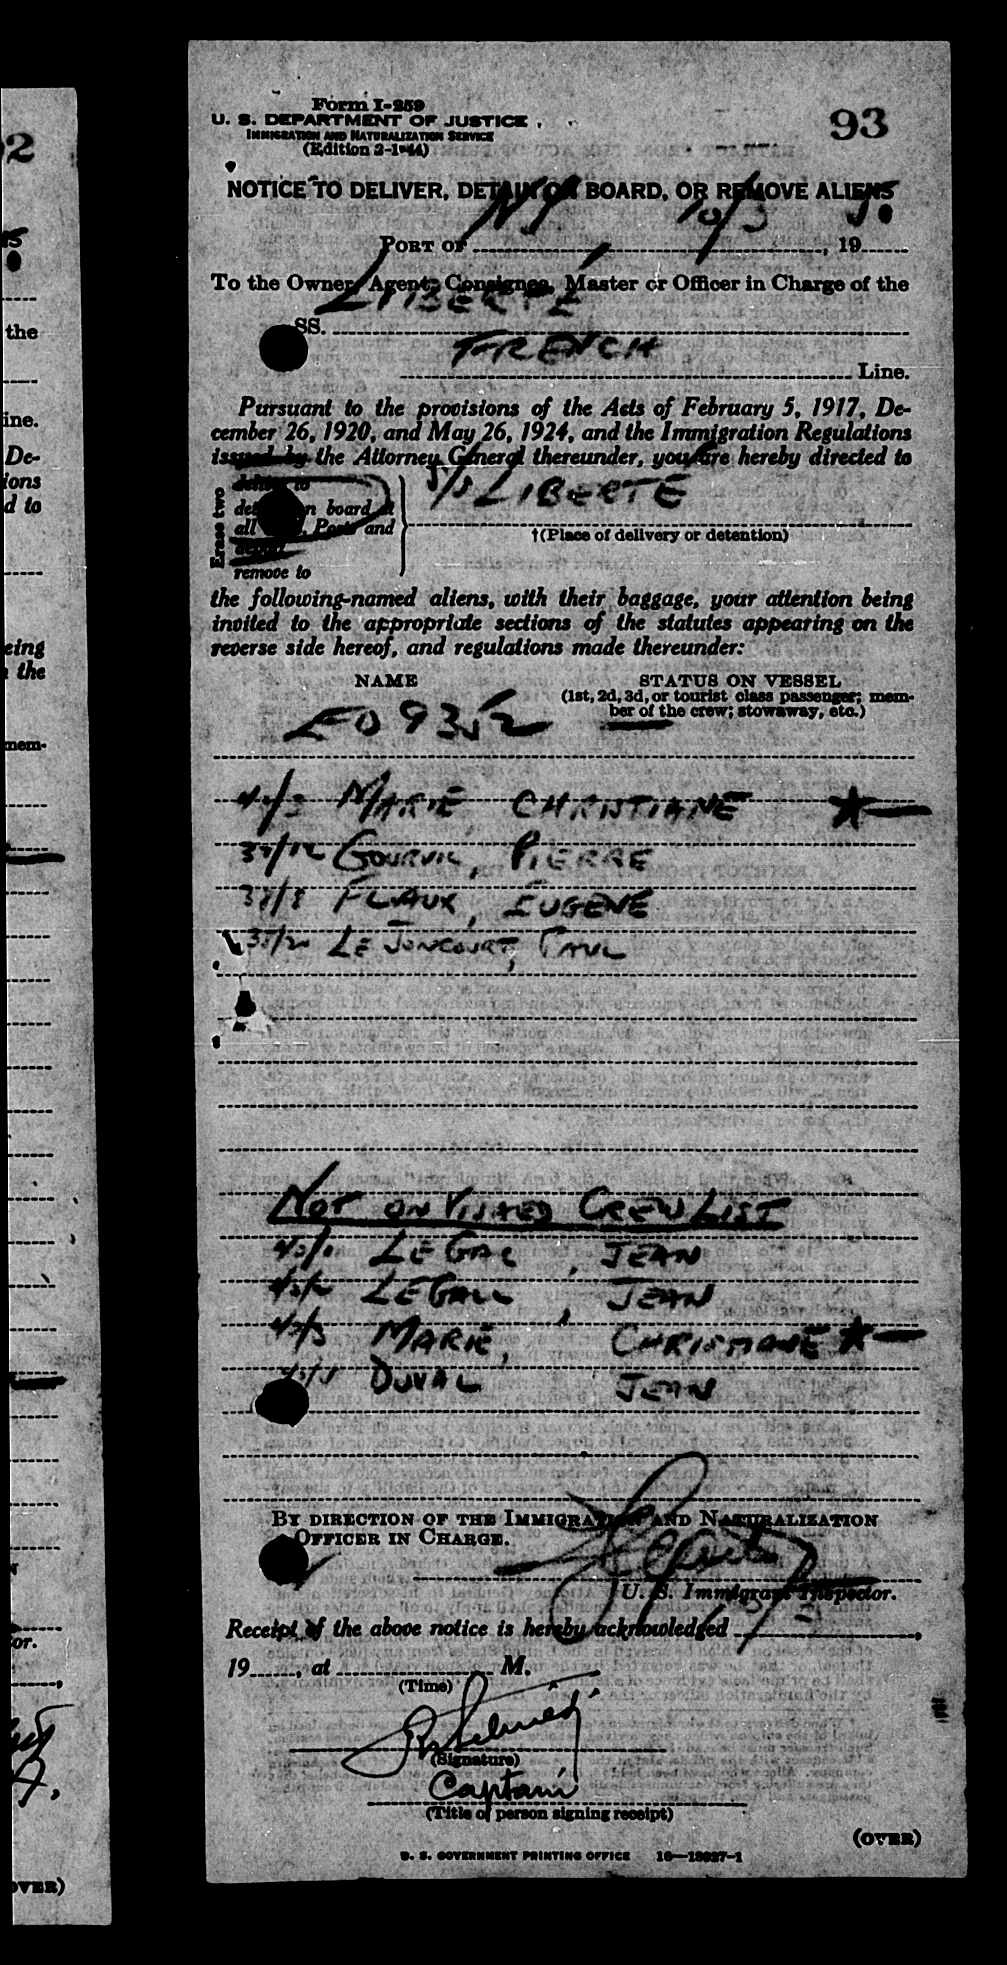 Form I-259
U. S. DEPARTMENT OF JUSTICE
IMMIGRATION AND NATURALIZATION SERVICE
(Edition 2-1-44)
93
NOTICE TO DELIVER, DETAIN ON BOARD, OR REMOVE ALIENS
PORT OF NY, 10/3, 19
To the Owner, Agent, Consignee, Master or Officer in Charge of the
SS. LIBERTE
FRENCH Line.
Pursuant to the provisions of the Acts of February 5, 1917, De-
cember 26, 1920, and May 26, 1924, and the Immigration Regulations
issued by the Attorney General thereunder, you are hereby directed to
Erase two
deliver to
detain on board at
all Ports and
remove to
S/S LIBERTE
†(Place of delivery or detention)
the following-named aliens, with their baggage, your attention being
invited to the appropriate sections of the statutes appearing on the
reverse side hereof, and regulations made thereunder:
NAME
STATUS ON VESSEL
(1st, 2d, 3d, or tourist class passenger; mem-
ber of the crew; stowaway, etc.)
EO 9352
MARIE CHRISTIANE
37/12 GOURVIL, PIERRE
37/8 FLAUX, EUGENE
LE JONCOURT, PAUL
NOT ON VISAED CREW LIST
LE GAL, JEAN
LEGALL, JEAN
43/3 MARIE, CHRISTIANE
DUVAL JEAN
BY DIRECTION OF THE IMMIGRATION AND NATURALIZATION
OFFICER IN CHARGE.
U. S. Immigrant Inspector.
Receipt of the above notice is hereby acknowledged
19, at M.
(Time)
(Signature)
Captain
(Title of person signing receipt)
(OVER)
U. S. GOVERNMENT PRINTING OFFICE 16—13927-1